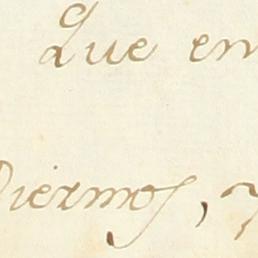 Que en
Diezmos, y